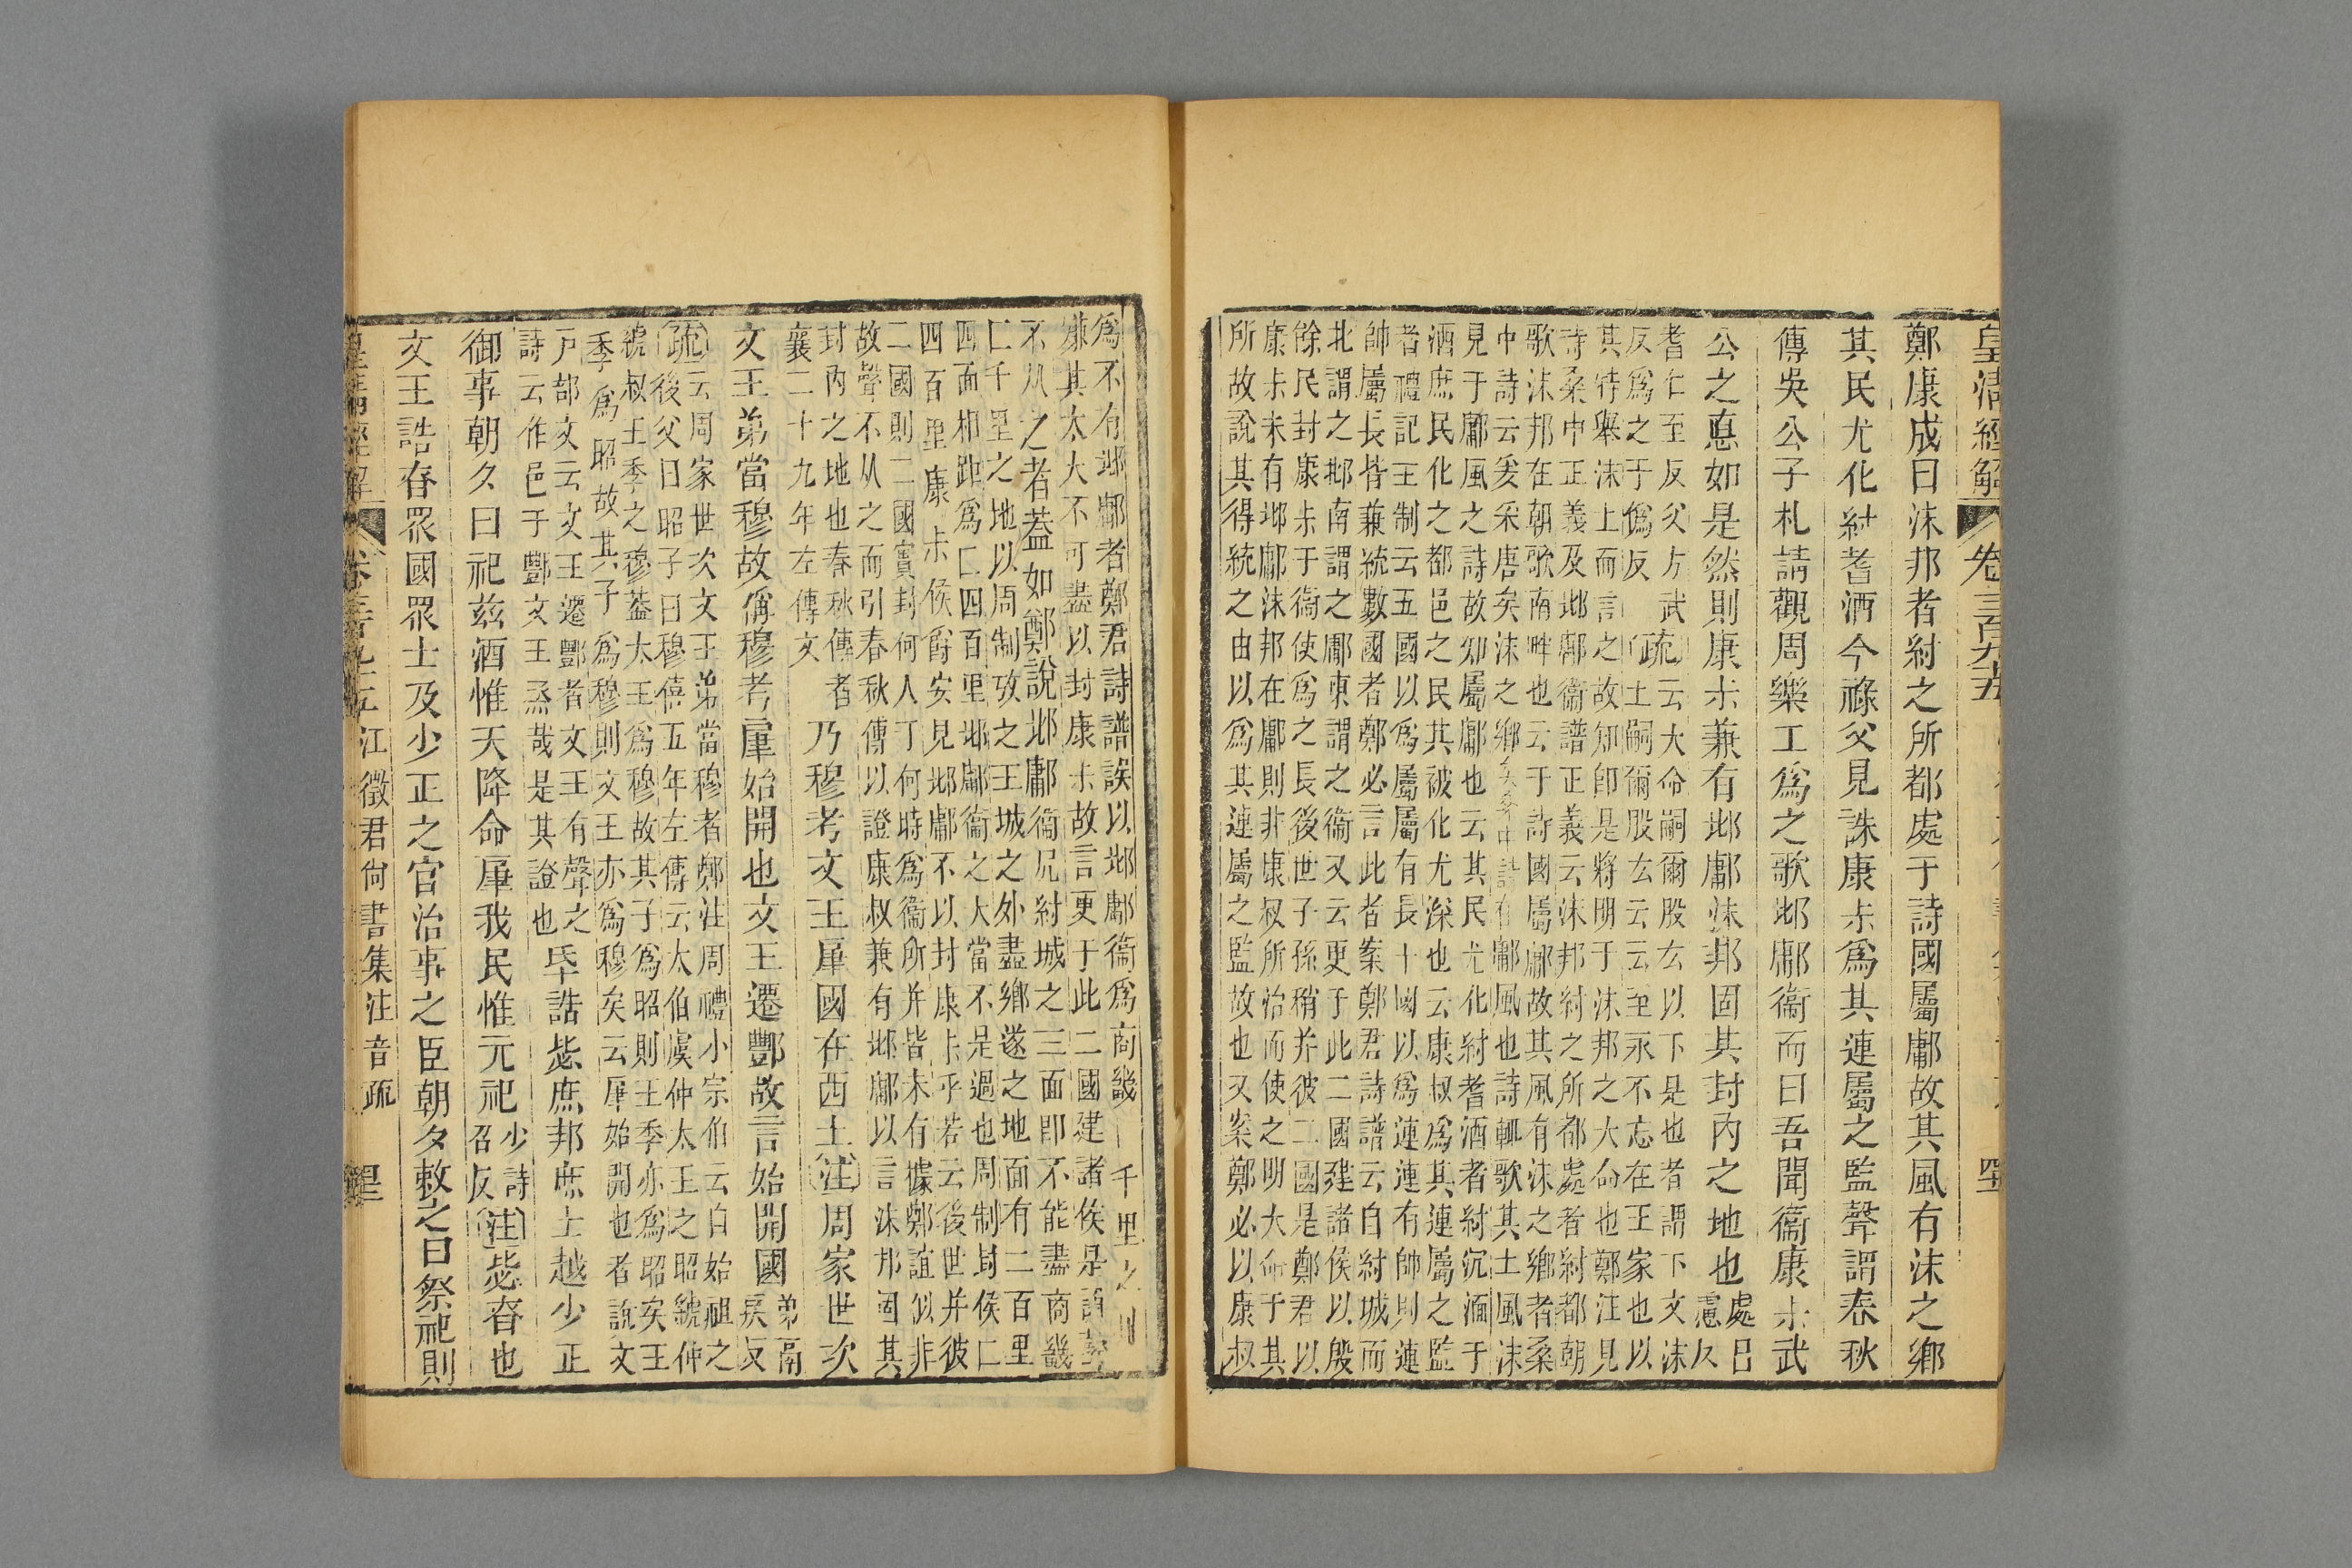 皇淸經解
卷三百九十五
鄭康成曰沬邦者紂之所都處于詩國屬鄘故其風有沬之鄉
其民尤化紂耆酒今祿父見誅康尗爲其連屬之監聲謂春秋
傳吳公子札請觀周樂工爲之歌邶鄘衞而曰吾聞衞康尗武
公之悳如是然則康尗兼有邶鄘沬邦固其封內之地也
處巨
慮反
耆仁至反父方武
反爲之于僞反
疏
云大命嗣爾股厷以下是也者謂下文沬
土嗣爾股厷云云至永不忘在王家也以
其特舉沬土而言之故知卽是將明于沬邦之大命也鄭注見
詩桑中正義及邶鄘衞譜正義云沬邦紂之所都處者紂都朝
歌沬邦在朝歌南畔也云于詩國屬鄘故其風有沬之鄉者桑
中詩云爰采唐矣沬之鄉矣桑中詩在鄘風也詩輒歌其土風沬
見于鄘風之詩故知屬鄘也云其民尤化紂耆酒者紂沉湎于
酒庶民化之都邑之民其被化尤深也云康叔爲其連屬之監
者禮記王制云五國以爲屬屬有長十國以爲連連有帥則連
帥屬長皆兼統數國者鄭必言此者案鄭君詩譜云自紂城而
北謂之邶南謂之鄘東謂之衞又云更于此二國建諸侯以殷
餘民封康尗于衞使爲之長後世子孫稍并彼二國是鄭君以
康尗未有邶鄘沬邦在鄘則非康叔所治而使之明大命于其
所故說其得統之由以爲其連屬之監故也又案鄭必以康叔
爲不有邶鄘者鄭君詩譜誤以邶鄘衞爲商畿千里之
嫌其太大不可盡以封康尗故言更于此二國建諸侯是
不从之者葢如鄭說邶鄘衞凥紂城之三面卽不能盡商畿
仁千里之地以周制攷之王城之外盡鄉遂之地面有二百里
四面相距爲仁四百里邶鄘衞之大當不是過也周制封侯仁
四百里康尗侯爵安見邶鄘不以封康尗乎若云後世并彼
二國則二國實封何人丁何時爲衞所并皆未有據鄭誼似非
故聲不从之而引春秋傳以證康叔兼有邶鄘以言沬邦固其
封內之地也春秋傳者
襄二十九年左傳文
乃穆考文王庫國在西土
注
周家世次
文王弟當穆故偁穆考庫始開也文王遷酆故言始開國
弟鬲
矦反
疏
云周家世次文王弟當穆者鄭注周禮小宗伯云自始祖之
後父曰昭子曰穆僖五年左傳云太伯虞仲太王之昭虢仲
虢叔王季之穆葢太王爲穆故其子爲昭則王季亦爲昭矣王
季爲昭故其子爲穆則文王亦爲穆矣云庫始開也者說文
戶部文云文王遷酆者文王有聲之
詩云作邑于酆文王烝哉是其證也
氒誥毖庶邦庶士越少正
御事朝夕曰祀兹酒惟天降命庫我民惟元祀
少詩
召反
注
毖春也
文王誥春眾國眾士及少正之官治事之臣朝夕敕之曰祭祀則
皇淸經解
卷三百九十五
江徵君尙書集注音疏